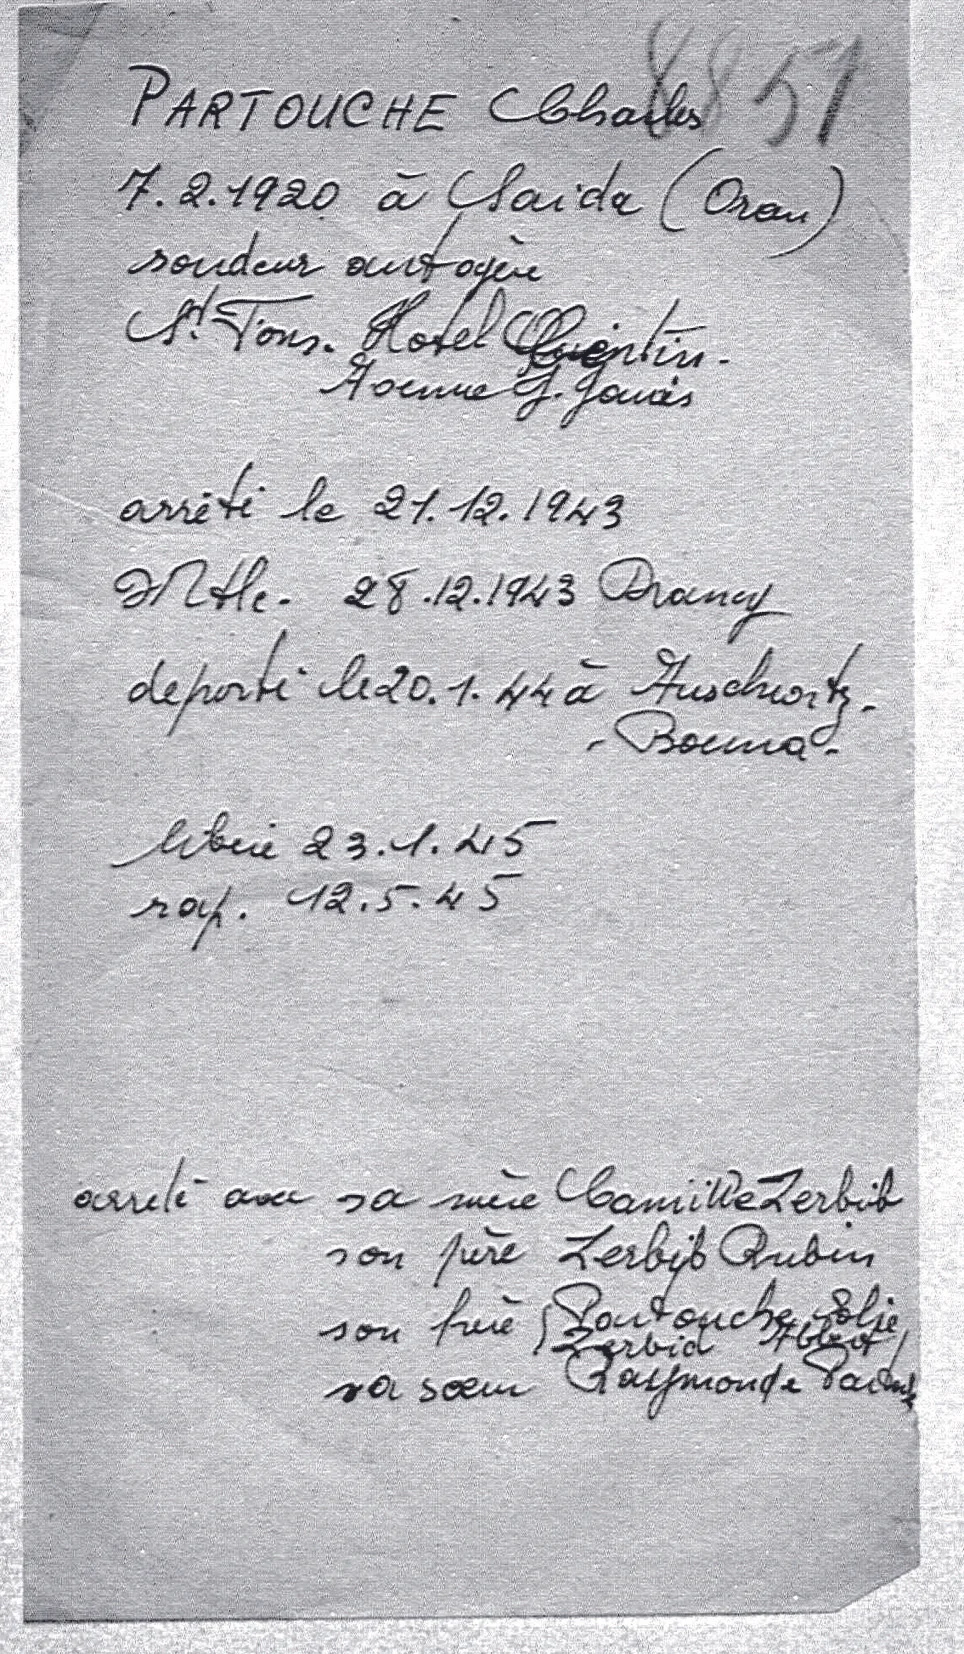 8851
PARTOUCHE Charles
7.2.1920 à Saida (Oran)
soudeur autogène
St. Fons. Hotel Quentin.
Avenue J. Jaurès
arrêté le 21.12.1943
Mtlc. 28.12.1943 Drancy
deporté le 20.1.44 à Auschwitz-
- Bouna -
libéré 23.1.45
rap. 12.5.45
arreté avec sa mère Camille Zerbib
son père Zerbib Rubin
son frère (Partouche Elie
Zerbib Albert)
sa sœur Raymonde